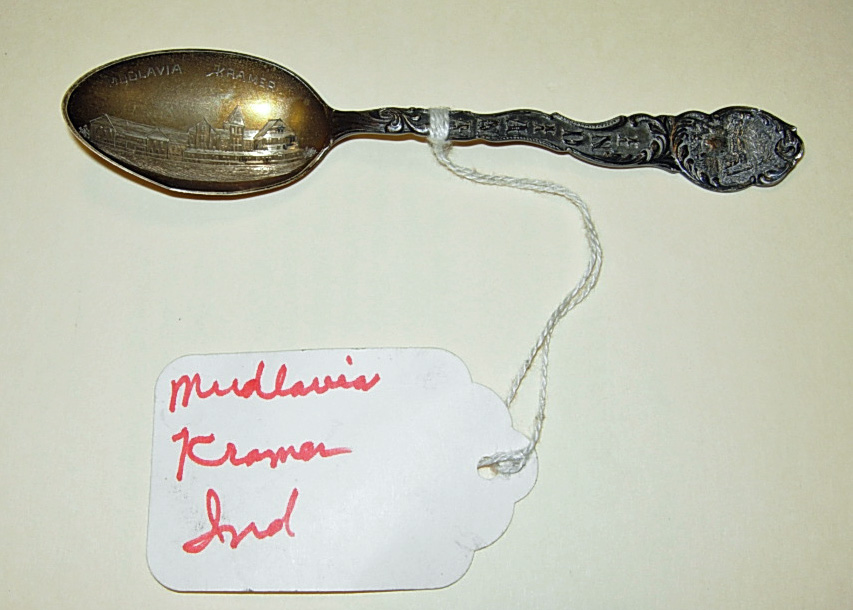 MUDLAVIA KRAMER
Mudlavia
Kramer
Ind